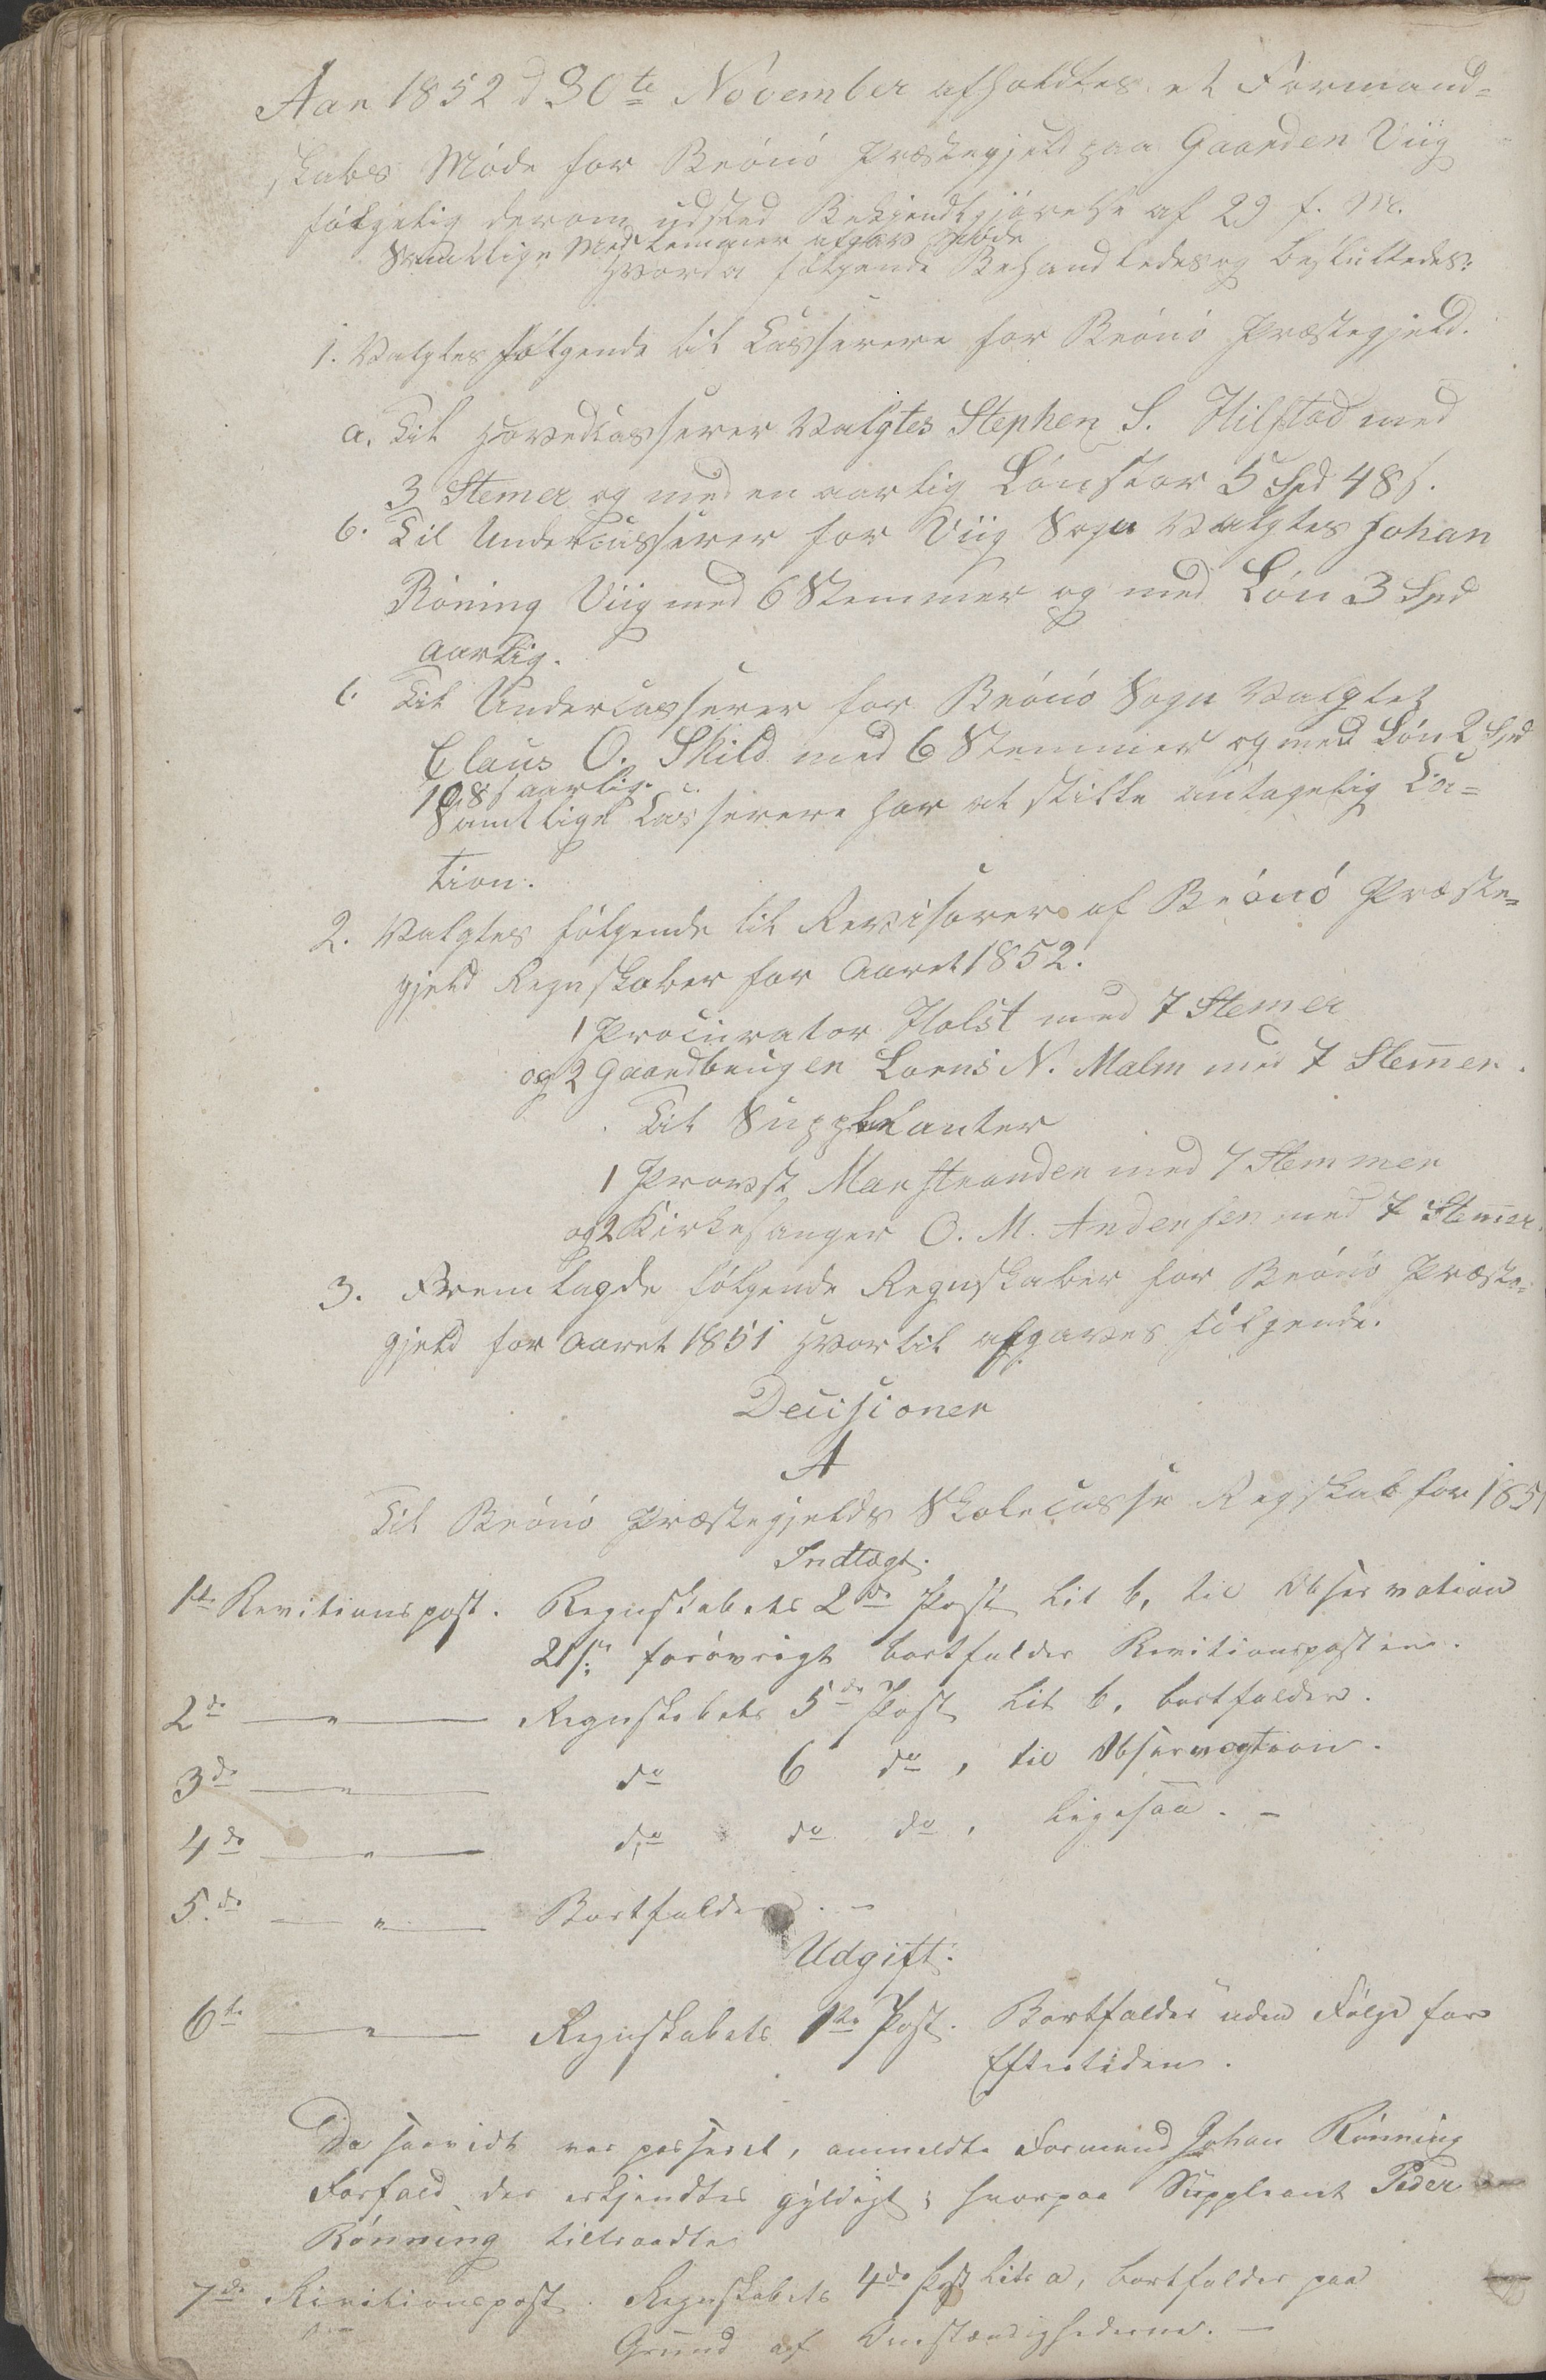 Aar 1852 d 30te November afholdtes et Formand=
skabs Møde for Brønø Præstegjeld paa Gaarden Viig
følgelig derom udsted Bekjendtgjørelse af 29 f. M.
Samtlige Medlemmer afgav Møde
Hvorda følgende Behandledes og besluttedes:
1. Valgtes følgende til Casserere for Brønø Præstegjeld.
a. Til Hovedcasserer Valgtes Stephen S. Hilstad med
3 Stemer og med en aarlig Løn stor 5 Spd 48 s.
b. Til Undercasserer for Viig Sogn Valgtes Johan
Røning Viig med 6 Stemmer og med Løn 3 Spd
aarlig.
c. Til Undercasserer for Brønø Sogn Valgtes
Claus O. Skild med 6 Stemmer og med Løn 2 Spd
108 s aarlig.
Samtlige Casserere har at stille antagelig Ca=
tion.
2. Valgtes følgende til Revisorer af Brønø Præste=
gjeld Regnskaber for Aaret 1852.
1 Procurator Holst med 7 Stemer
og 2 Gaardbruger Lorns N. Malm med 7 Stemer.
Til Suppleanter
1 Provst Marstrander med 7 Stemmer
og 2 Kirkesanger O. M. Andersen med 7 Stemer.
3. Fremlagde følgende Regnskaber for Brønø Præste=
gjeld for Aaret 1851 Hvortil afgaves følgende.
Decisioner
A
Til Brønø Præstegjelds Skolecasse Regskab for 1851
Indtægt.
1te Revitionspost. Regnskabets 2de Post Lit b, til Observation
21 s; forøvrigt bortfalder Revitionsposten.
2de — " — Regnskabets 5de Post Lit b. bortfalder.
3de — " — do 6 do, til Observation.
4de — " — do do do, ligesaa. -
5.de — " — Bortfalder. -
Udgift.
6te — " — Regnskabets 1te Post. Bortfalder uden Følge for
Eftertiden.
Da saavidt var passeret, anmeldte Formand Johan Rønning
Forfald, der erkjendtes gyldigt; hvorpaa Suppleant Peder
Rønning tiltraadte
7de Revitionspost. Regnskabets 4de Post Litr a, bortfalder paa
Grund af Omstændighederne. -